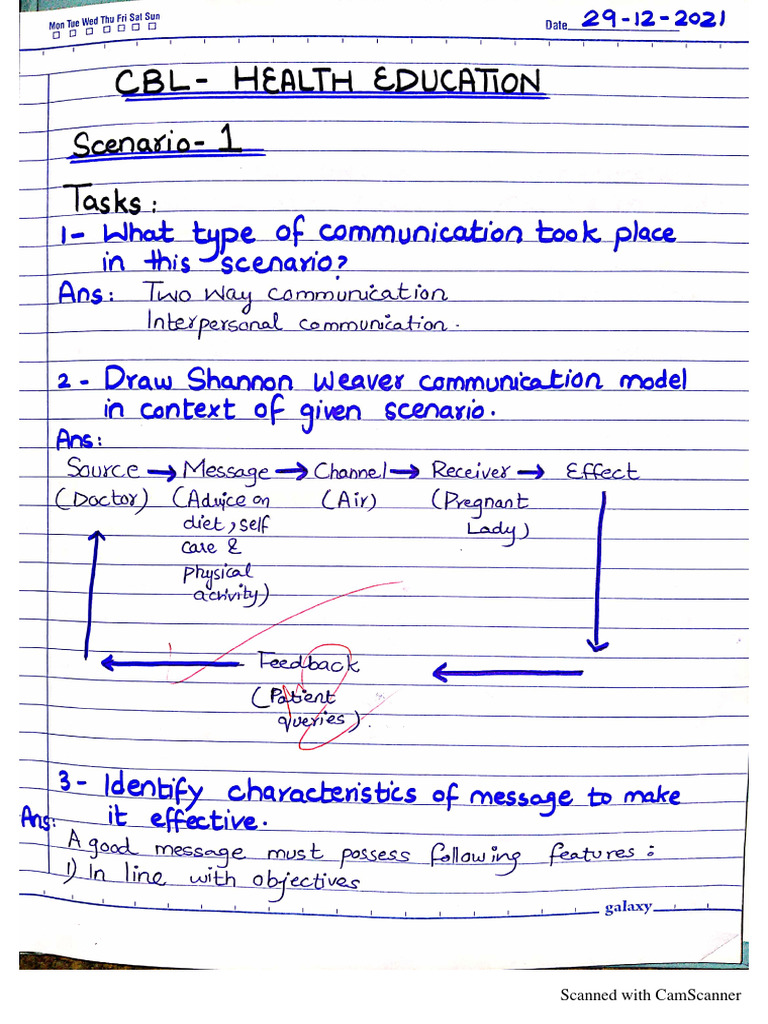 Mon Tue Wed Thu Fri Sat Sun
Date 29-12-2021
CBL- HEALTH EDUCATION
Scenario- 1
Tasks:
1- What type of communication took place
in this scenario?
Ans: Two Way communication
Interpersonal communication.
2- Draw Shannon Weaver communication model
in context of given scenario.
Ans:
Source → Message → Channel → Receiver → Effect
(Doctor) (Advice on (Air) (Pregnant
diet, self Lady)
care &
physical
activity)
Feedback
(Patient
queries).
3- Identify characteristics of message to make
Ans: it effective.
A good message must possess following features:
1) In line with objectives
galaxy
Scanned with CamScanner